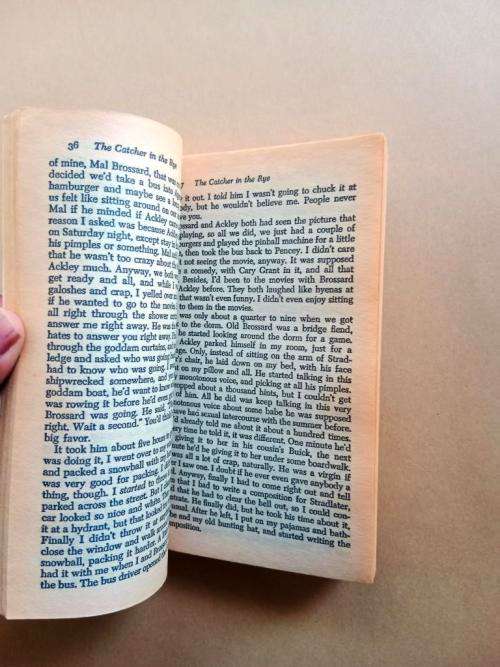 36 The Catcher in the Rye
of mine, Mal Brossard, that was
decided we'd take a bus into
hamburger and maybe see a
us felt like sitting around on our
Mal if he minded if Ackley came
reason I asked was because Ackley
on Saturday night, except stay
his pimples or something. Mal
that he wasn't too crazy about
Ackley much. Anyway, we both
get ready and all, and while I
galoshes and crap, I yelled over
if he wanted to go to the movies
all right through the shower
answer me right away. He was
hates to answer you right away.
through the goddam curtains,
ledge and asked who was going
had to know who was going. I
shipwrecked somewhere, and
goddam boat, he'd want to know
was rowing it before he'd even
Brossard was going. He said,
right. Wait a second." You'd think
big favor.
It took him about five hours
was doing it, I went over to my
and packed a snowball with
was very good for packing. I
thing, though. I started to
parked across the street. But
car looked so nice and white.
it at a hydrant, but that looked
Finally I didn't throw it at
close the window and walk
snowball, packing it harder. A
had it with me when I and
the bus. The bus driver opened
The Catcher in the Rye
it out. I told him I wasn't going to chuck it at
but he wouldn't believe me. People never
you.
and Ackley both had seen the picture that
playing, so all we did, we just had a couple of
and played the pinball machine for a little
then took the bus back to Pencey. I didn't care
not seeing the movie, anyway. It was supposed
a comedy, with Cary Grant in it, and all that
Besides, I'd been to the movies with Brossard
Ackley before. They both laughed like hyenas at
that wasn't even funny. I didn't even enjoy sitting
to them in the movies.
was only about a quarter to nine when we got
to the dorm. Old Brossard was a bridge fiend,
he started looking around the dorm for a game.
Ackley parked himself in my room, just for a
Only, instead of sitting on the arm of Strad-
chair, he laid down on my bed, with his face
on my pillow and all. He started talking in this
monotonous voice, and picking at all his pimples.
about a thousand hints, but I couldn't get
of him. All he did was keep talking in this very
voice about some babe he was supposed
have had sexual intercourse with the summer before.
already told me about it about a hundred times.
time he told it, it was different. One minute he'd
giving it to her in his cousin's Buick, the next
he'd be giving it to her under some boardwalk.
was all a lot of crap, naturally. He was a virgin if
I saw one. I doubt if he ever even gave anybody a
Anyway, finally I had to come right out and tell
that I had to write a composition for Stradlater,
that he had to clear the hell out, so I could con-
He finally did, but he took his time about it,
After he left, I put on my pajamas and bath-
and my old hunting hat, and started writing the